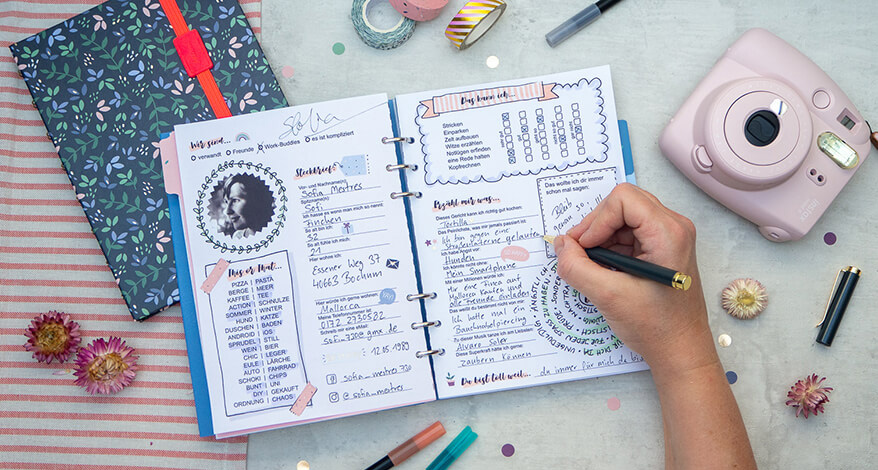 Wir sind...
Sofia
verwandt Freunde Work-Buddies es ist kompliziert
Steckbrief
Vor- und Nachname(n)
Sofia Mestres
Spitzname(n)
Sofi
Ich hasse es wenn man mich so nennt:
Finchen
So alt bin ich:
32
So alt fühle ich mich:
21
Hier wohne ich:
Essener Weg 37
40663 Bochum
Hier würde ich gerne wohnen:
Mallorca
Meine Telefonnummer ist:
0172 2730582
Schreib mir eine eMail:
12.05.1989
sofia_mestres730
@sofia_mestres
This or That...
PIZZA | PASTA
BERGE | MEER
KAFFEE | TEE
ACTION | SCHNULZE
SOMMER | WINTER
HUND | KATZE
DUSCHEN | BADEN
ANDROID | IOS
SPRUDEL | STILL
WEIN | BIER
CHIC | LEGER
AUTO | FAHRRAD
SCHOKI | CHIPS
BUNT | UNI
DIY | GEKAUFT
ORDNUNG | CHAOS
Das kann ich...
Stricken
Einparken
Zeit aufbauen
Witze erzählen
Notlügen erfinden
eine Rede halten
Kopfrechnen
Erzähl mir was...
Dieses Gericht kann ich richtig gut kochen:
Tortilla
Das Peinlichste, was mir jemals passiert ist:
Ich bin gegen eine
Straßenlaterne gelaufen
Ich habe Angst vor:
Hunden
Ich könnte nicht ohne:
Mein Smartphone
Mit einer Million würde ich:
Mir eine Finca auf
Mallorca kaufen und
alle Freunde einladen
Das weißt du noch nicht von mir:
Ich hatte mal ein
Bauchnabelpiercing
Zu dieser Musik tanze ich am Liebsten:
Alvaro Soler
Diese Superkraft hätte ich gerne:
zaubern können
Das wollte ich dir immer
schon mal sagen:
Bleib
genau so,
Du bist toll weil...
du immer für mich da bist